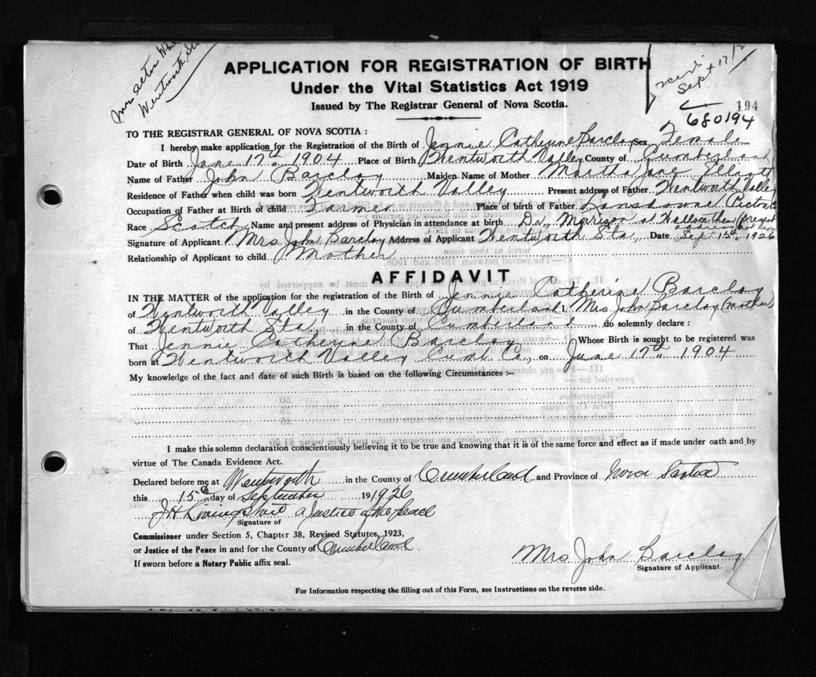 Wentworth
APPLICATION FOR REGISTRATION OF BIRTH
Under the Vital Statistics Act 1919
Issued by The Registrar General of Nova Scotia.
Sept 17/
194
680194
TO THE REGISTRAR GENERAL OF NOVA SCOTIA :
I hereby make application for the Registration of the Birth of Jennie Catherine Barclay Sex Female
Date of Birth June 17th 1904 Place of Birth Wentworth Valley County of Cumberland
Name of Father John Barclay Maiden Name of Mother Martha Elliott
Residence of Father when child was born Wentworth Valley Present address of Father Wentworth Valley
Occupation of Father at Birth of child Farmer Place of birth of Father Lansdowne Pictou
Race Scotch Name and present address of Physician in attendance at birth Dr. Morrison (present
Signature of Applicant Mrs John Barclay Address of Applicant Wentworth Sta. Date Sept 15th 1926
Relationship of Applicant to child Mother
AFFIDAVIT
IN THE MATTER of the application for the registration of the Birth of Jennie Catherine Barclay
of Wentworth Valley in the County of Cumberland I, Mrs John Barclay (mother)
of Wentworth Sta. in the County of Cumberland do solemnly declare :
That Jennie Catherine Barclay Whose Birth is sought to be registered was
born at Wentworth Valley Cumb Co., on June 17th 1904
My knowledge of the fact and date of such Birth is based on the following Circumstances :-
I make this solemn declaration conscientiously believing it to be true and knowing that it is of the same force and effect as if made under oath and by
virtue of The Canada Evidence Act.
Declared before me at Wentworth in the County of Cumberland and Province of Nova Scotia
this 15th day of September 191926
J H Livingston a Justice of the peace
Signature of
Commissioner under Section 5, Chapter 38, Revised Statutes, 1923,
or Justice of the Peace in and for the County of Cumberland
If sworn before a Notary Public affix seal.
Mrs John Barclay
Signature of Applicant.
For Information respecting the filling out of this Form, see Instructions on the reverse side.